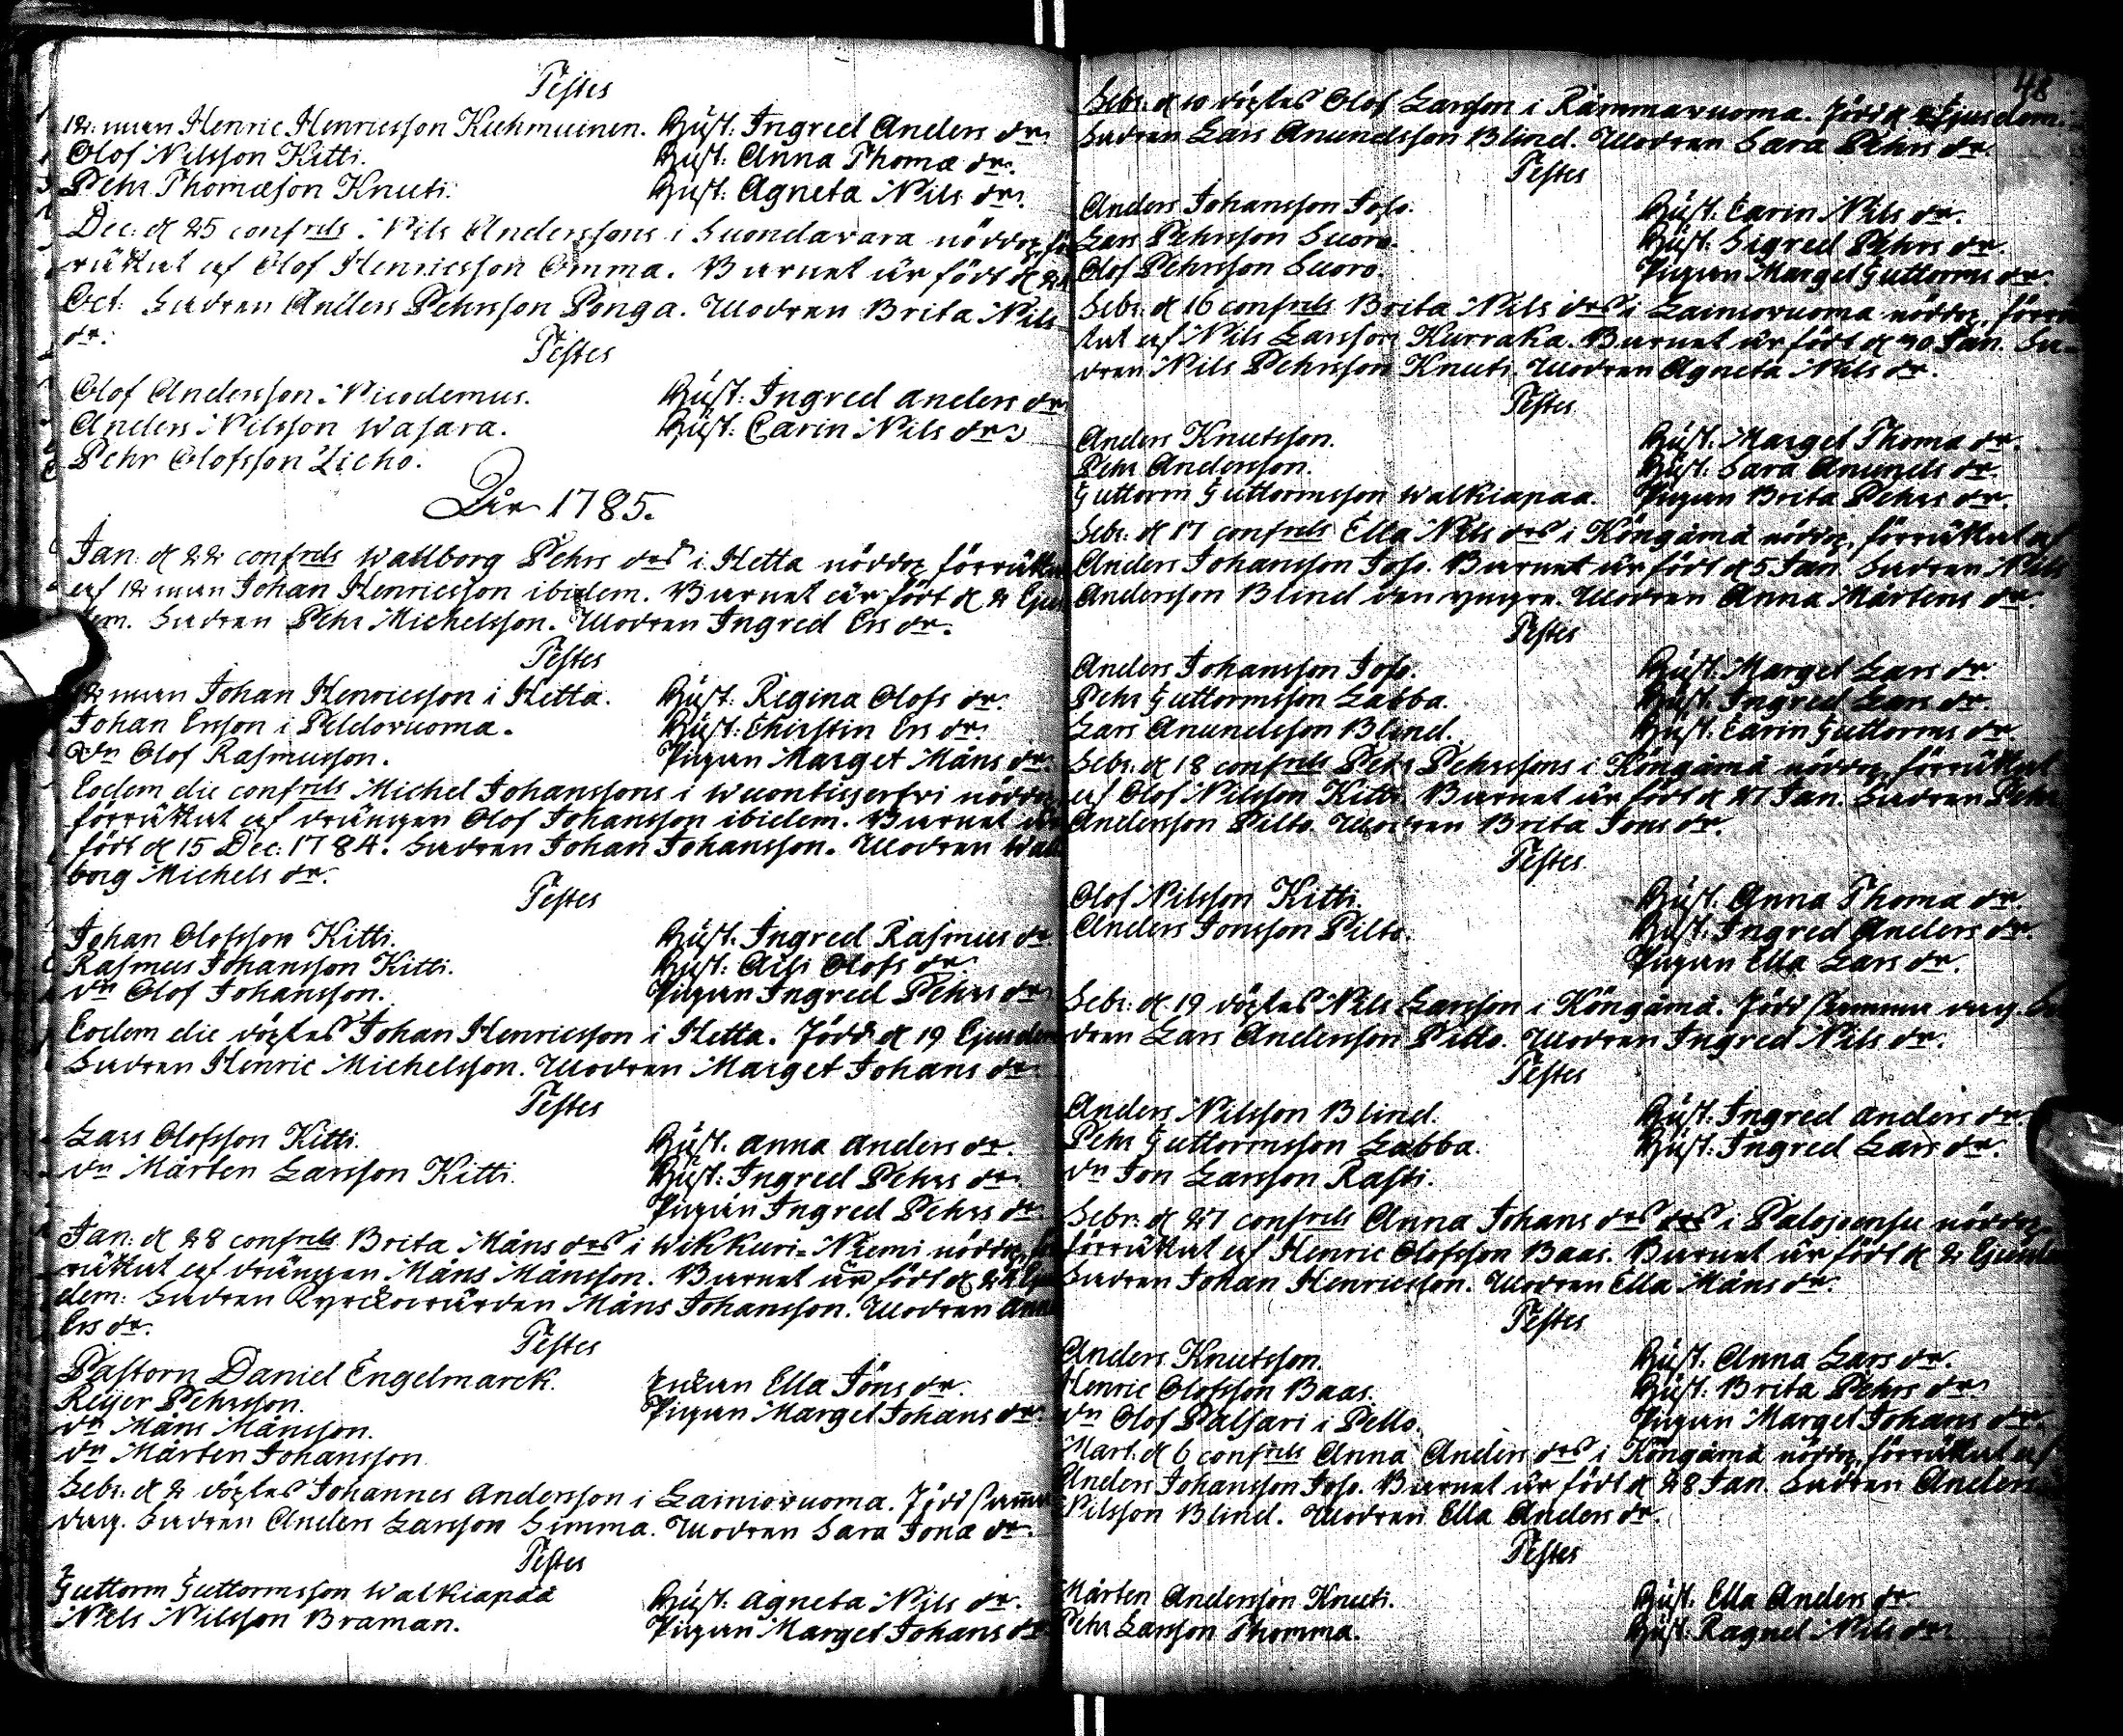 Testes
12: man Henric Henricsson Kuhmuinen. Hust: Ingred Anders dr.
Olof Nilsson Kitti. Hust: Anna Thomæ dr.
Pehr Thomæson Knuti. Hust: Agneta Nils dr.
Dec: d 25 confrels. Nils Anderssons i Suondavara nöddop, för
rättat af Olof Henricsson Omma. Barnet är födt d
Oct: Fadren Anders Pehrsson Ponga. Modren Brita Nils
dr.
Testes
Olof Andersson Nicodemus. Hust: Ingred anders dr
Anders Nilsson Wasara. Hust: Carin Nils dr.
Pehr Olofsson Licho.
År 1785.
Jan: d 22 confrels Wallborg Pehrs drs i Hetta nöddop förrättat
af 12 man Johan Henricsson ibidem. Barnet är födt d 2 Ejus
dem. Fadren Pehr Michelsson. Modren Ingred Ers dr.
Testes
12 man Johan Henricsson i Hetta. Hust: Regina Olofs dr.
Johan Ersson i Peldovuoma. Hust: Chirstin Ers dr.
dn Olof Rasmusson. Pigan Marget Måns dr.
Eodem die confrels Michel Johanssons i Wuontisjerfvi nöddop
förrättat af drängen Olof Johansson ibidem. Barnet är
födt d 15 Dec: 1784. Fadren Johan Johansson. Modren Wall
borg Michels dr.
Testes
Johan Olofsson Kitti. Hust: Ingred Rasmus dr
Rasmus Johansson Kitti. Hust: Aili Olofs dr.
dn Olof Johansson. Pigan Ingred Pehrs dr
Eodem die döptes Johan Henricsson i Hetta. Född d 19 Ejusdem
Fadren Henric Michelsson. Modren Marget Johans dr.
Testes
Lars Olofsson Kitti. Hust: anna anders dr.
dn Mårten Larsson Kitti. Hust: Ingred Pehrs dr
Pigan Ingred Pehrs dr
Jan: d 28 confrels Brita Måns drs i Wikkuri-Niemi nöddop, för
rättat af drängen Måns Månsson. Barnet är födt d
dem: Fadren Kyrckovärden Måns Johansson. Modren Anna
Ers dr.
Testes
Pastorn Daniel Engelmarck. Enkan Ella Jöns dr.
Reijer Pehrsson. Pigan Marget Johans dr.
dn Måns Månsson.
dn Mårten Johansson
Febr: d 2 döptes Johannes Andersson i Lainiovuoma. Född samma
dag. Fadren Anders Larsson Simma. Modren Sara Jonæ dr.
Testes
Guttorm Guttormsson Walkiapää Hust: agneta Nils dr.
Nils Nilsson Braman. Pigan Marget Johans dr
48
Febr: d 10 döptes Olof Larsson i Rämmavuoma. Född Ejusdem.
Fadren Lars Anundsson Blind. Modren Sara Pehrs dr.
Testes
Anders Johansson Joso. Hust: Carin Nils dr.
Lars Pehrsson Suoro. Hust: Sigred Pehrs dr
Olof Pehrsson Suoro. Pigan Marget Guttorms dr.
Febr: d 16 confrels Brita Nils drs i Lainiovuoma nöddop, förrät
tat af Nils Larsson Kurraka. Barnet är födt d 30 Jan. Fa-
dren Nils Pehrsson Knuti. Modren Agneta Nils dr.
Testes
Anders Knutsson. Hust: Marget Thomæ dr.
Pehr Andersson. Hust: Sara Anunds dr.
Guttorm Guttormsson Walkiapaa. Pigan Brita Pehrs dr.
Febr: d 17 confrels Ella Nils drs i Köngämä nöddop, förrättat af
Anders Johansson Joso. Barnet är födt d 5 Jan. Fadren Nils
Andersson Blind den yngre. Modren Anna Mårtens dr.
Testes
Anders Johansson Joso. Hust: Marget Lars dr.
Pehr Guttormsson Labba. Hust: Ingred Lars dr.
Lars Anundsson Blind. Hust: Carin Guttorms dr
Febr: d 18 confrels Pehr Pehrssons i Köngämä nöddop, förrättat
af Olof Nilsson Kitti. Barnet är födt d 27 Jan. Fadren Pehr
Andersson Pilto. Modren Brita Jons dr.
Testes
Olof Nilsson Kitti. Hust: Anna Thomæ dr.
Anders Jonsson Pilto. Hust: Ingred Anders dr.
Pigan Ella Lars dr.
Febr: d 19 döptes Nils Larsson i Köngämä. Född samma dag. Fa
dren Lars Andersson Pilto. Modren Ingred Nils dr.
Testes
Anders Nilsson Blind. Hust: Ingred anders dr.
Pehr Guttormsson Labba. Hust: Ingred Lars dr.
dn Jon Larsson Rasti.
Febr: d 27 confrels Anna Johans drs drs i Palojoensu nöddop,
förrättat af Henric Olofsson Baas. Barnet är födt d 2 Ejusdem
Fadren Johan Henricsson. Modren Ella Måns dr.
Testes
Anders Knutsson. Hust: Anna Lars dr.
Henric Olofsson Baas. Hust: Brita Pehrs dr
dn Olof Palsari i Pello. Pigan Marget Johans dr.
Mart: d 6 confrels Anna Anders drs i Köngämä nöddop, förrättat af
Anders Johansson Joso. Barnet är födt d 28 Jan. Fadren Anders
Nilsson Blind. Modren Ella Anders dr.
Testes
Mårten Andersson Knuti. Hust: Ella Anders dr.
Pehr Larsson Thomma. Hust: Ragnel Nils dr.